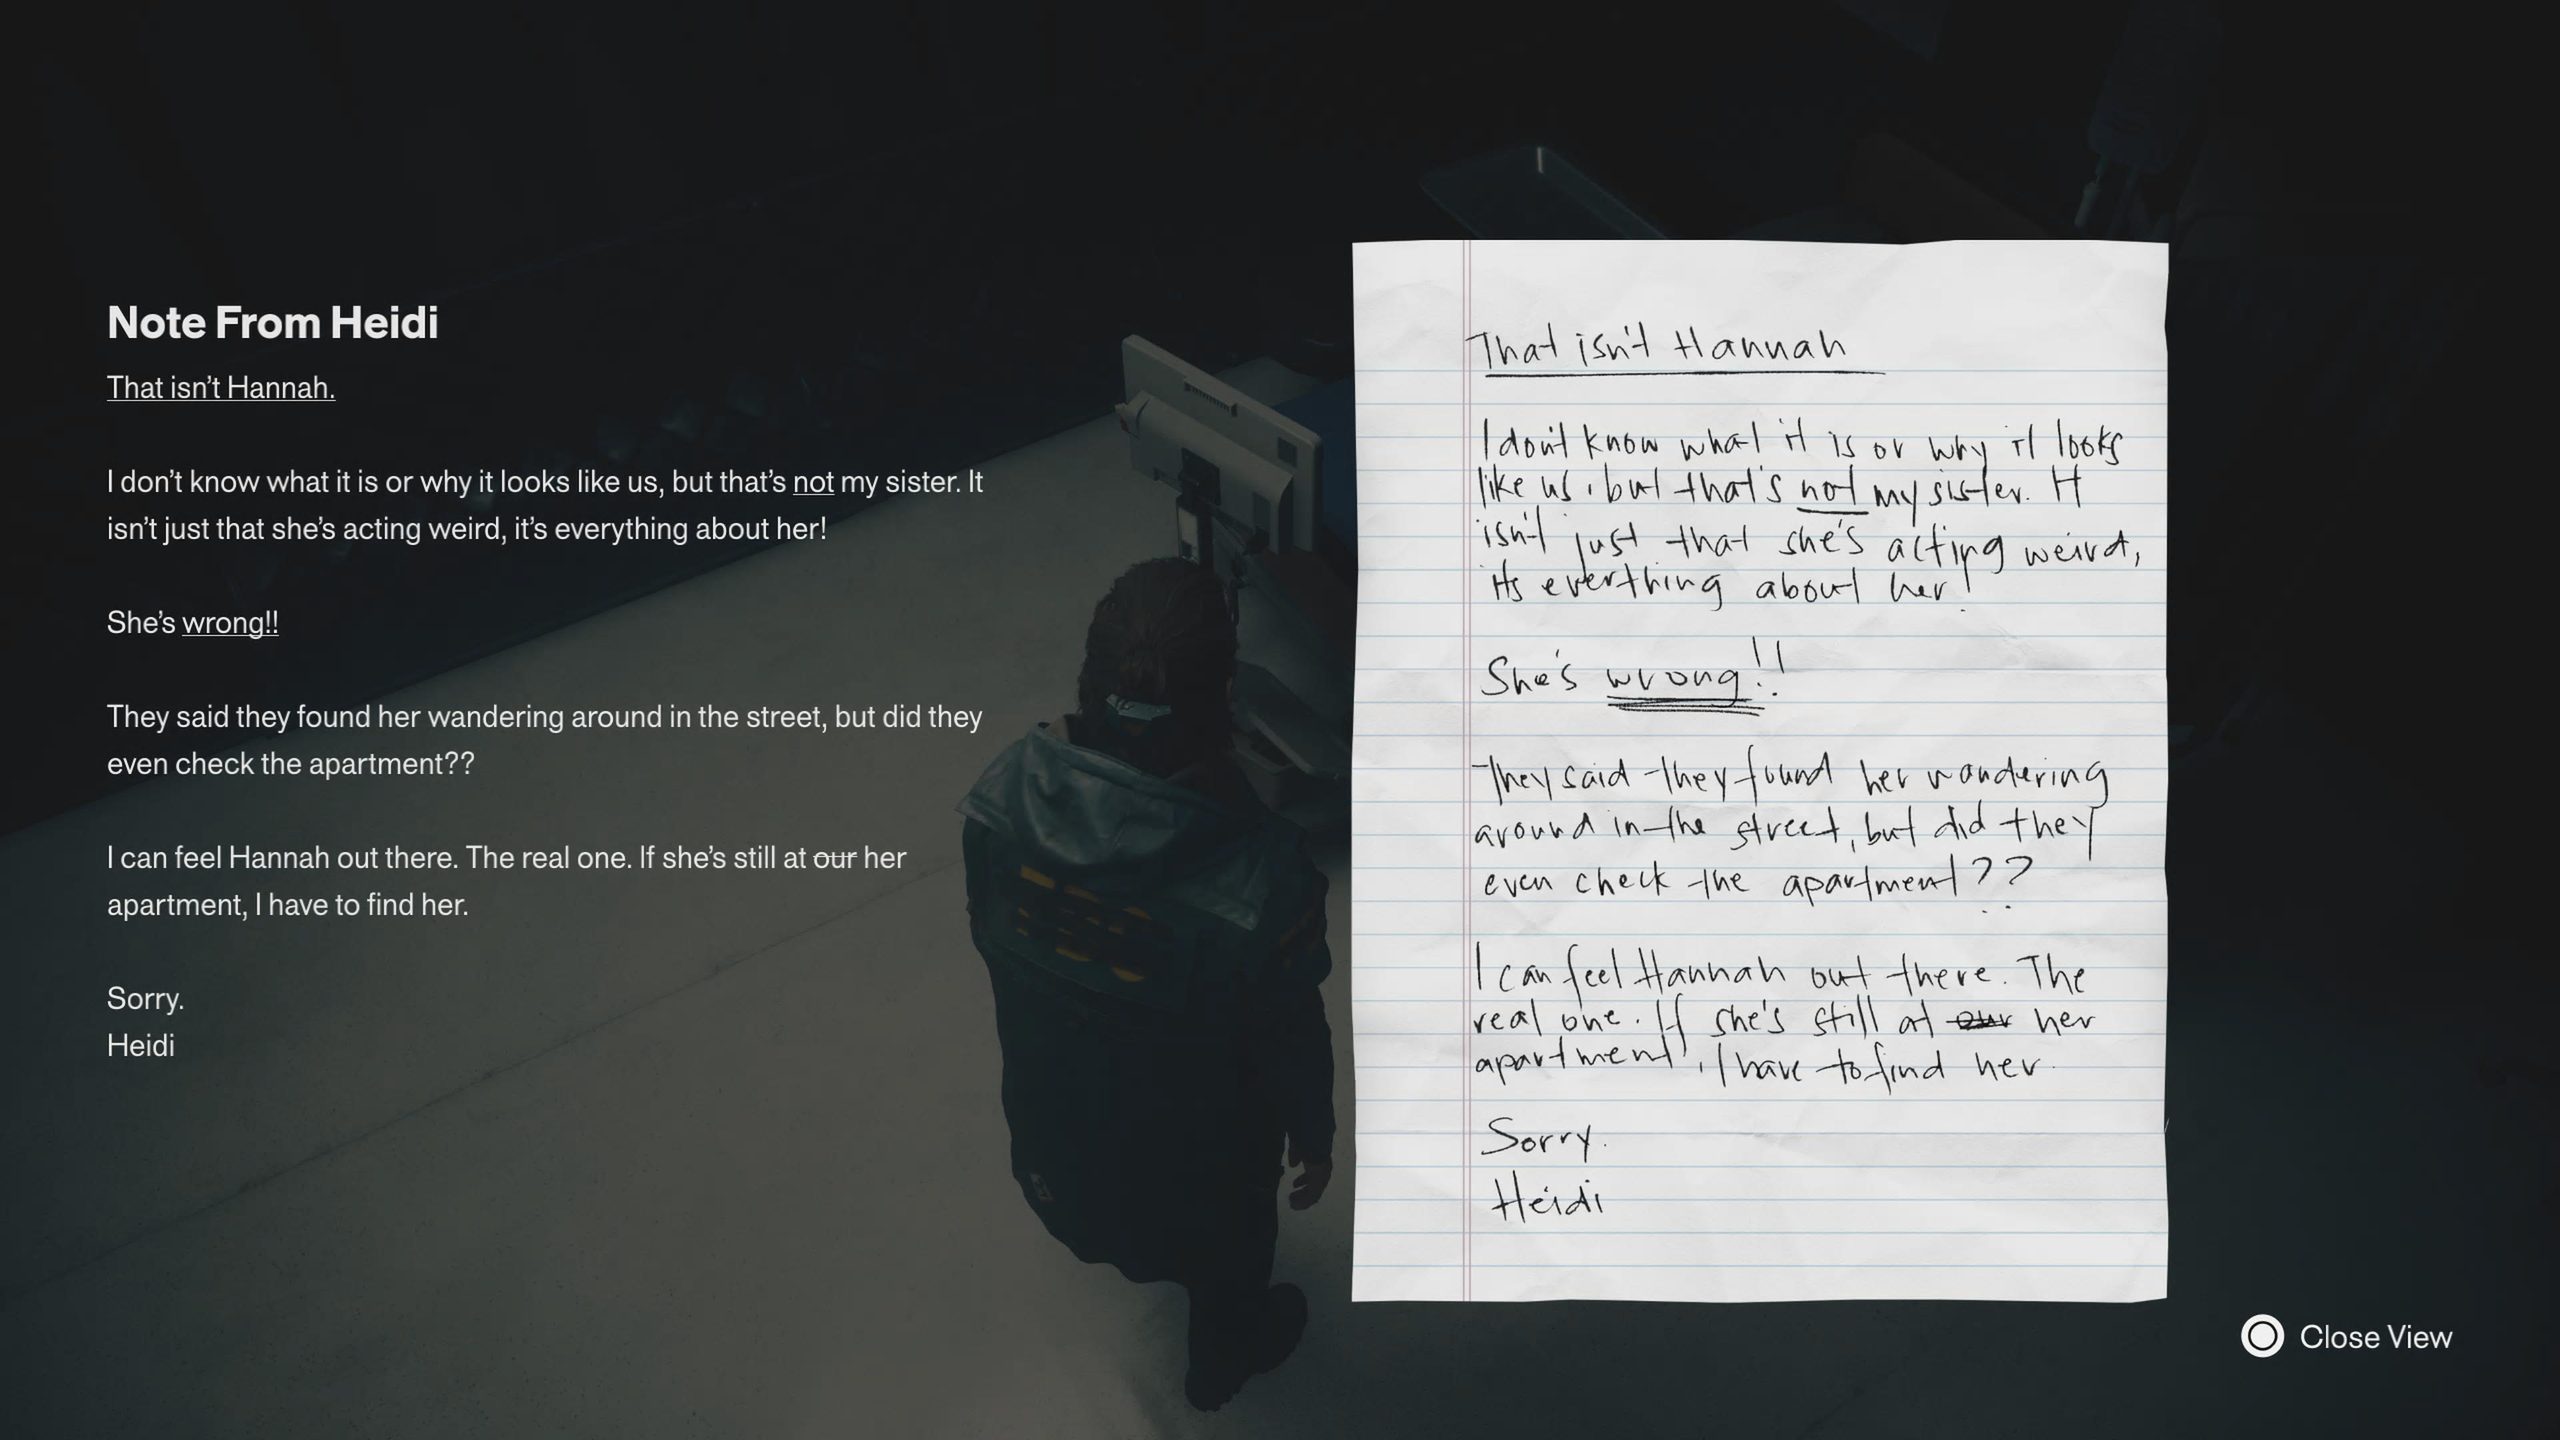 Note From Heidi
That isn't Hannah.
I don't know what it is or why it looks like us, but that's not my sister. It
isn't just that she's acting weird, it's everything about her!
She's wrong!!
They said they found her wandering around in the street, but did they
even check the apartment??
I can feel Hannah out there. The real one. If she's still at our her
apartment, I have to find her.
Sorry.
Heidi
That isn't Hannah
I don't know what it is or why it looks
like us, but that's not my sister. It
isn't just that she's acting weird,
its everthing about her!
She's wrong!!
They said they found her wandering
around in the street, but did they
even check the apartment??
I can feel Hannah out there. The
real one. If she's still at our her
apartment, I have to find her.
Sorry.
Heidi
Close View